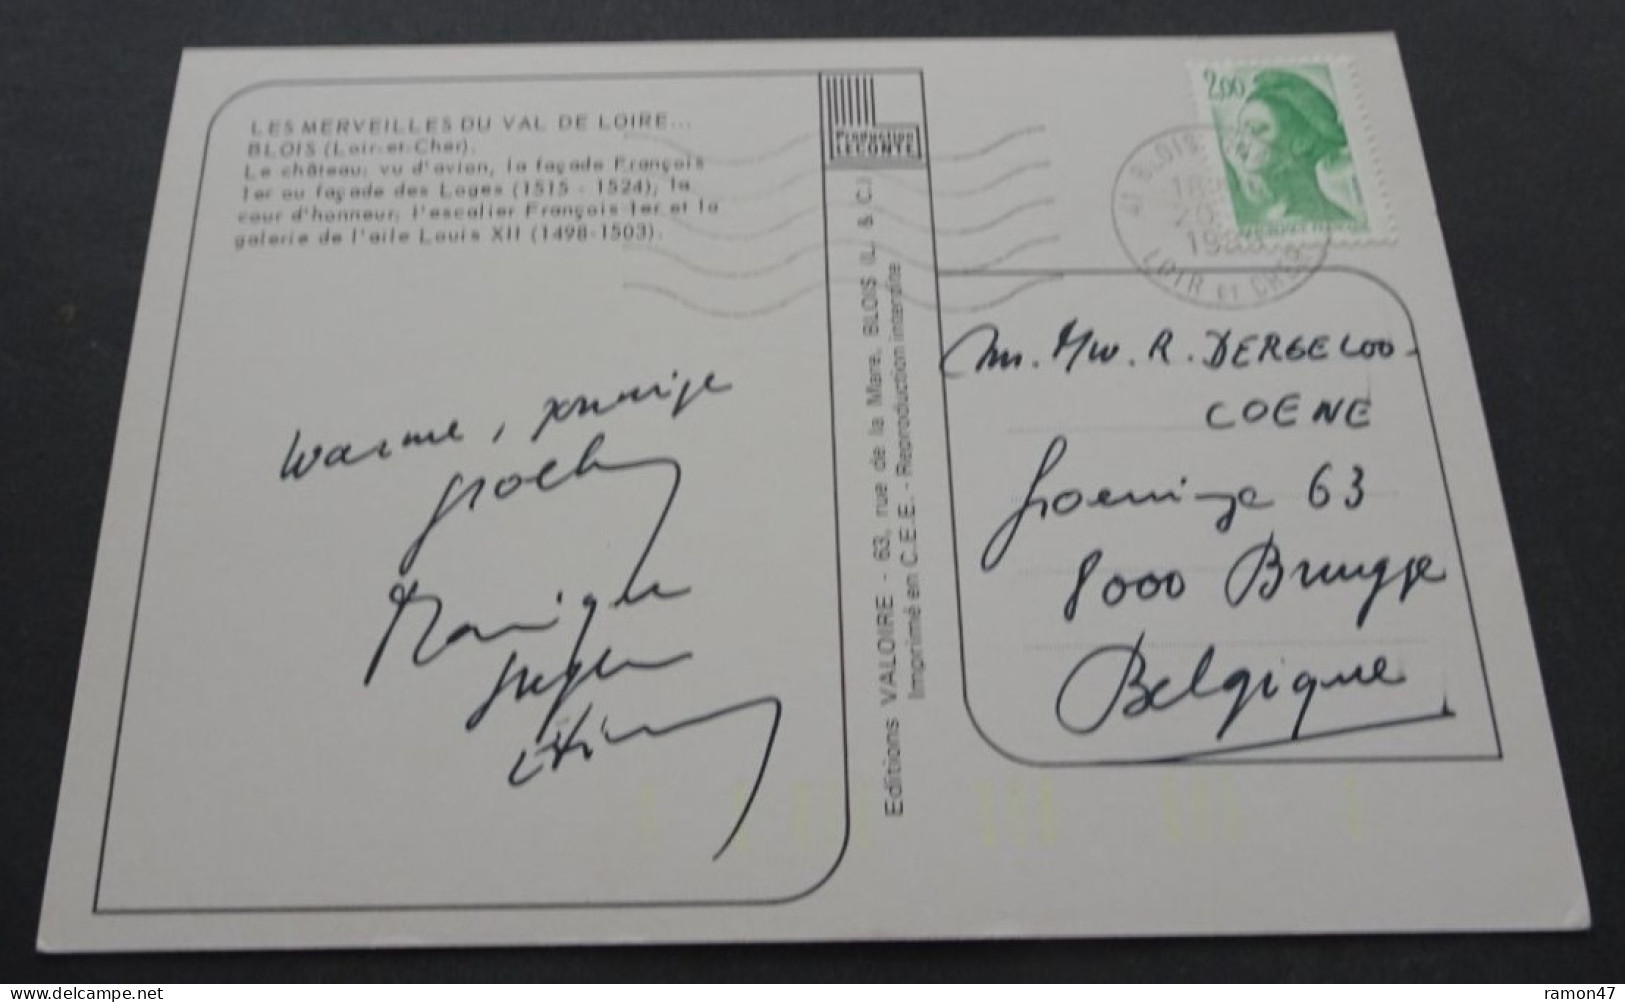 LES MERVEILLES DU VAL DE LOIRE...
BLOIS (Loir-et-Cher).
Le château; vu d'avion, la façade François
1er ou façade des Loges (1515 - 1524), la
cour d'honneur, l'escalier François 1er et la
galerie de l'aile Louis XII (1498-1503).
Warme, zonnige
groeten
Monique
Etienne
Production
LECONTE
Editions VALOIRE - 63, rue de la Mare, BLOIS (L. & C.)
Imprimé en C.E.E. - Reproduction interdite
2,00
41 BLOIS
LOIR et CHER
Mr. Mw. R. DERGELOO-
COENE
Groeninge 63
8000 Brugge
Belgique
ramon47